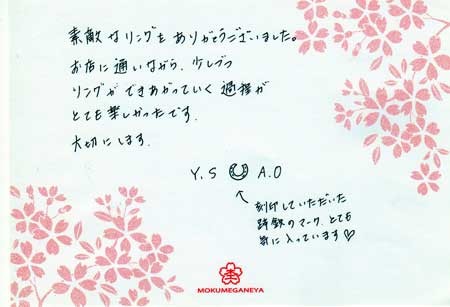 素敵なリングをありがとうございました。
お店に通いながら、少しづつ
リングができあがっていく過程が
とても楽しかったです。
大切にします。
Y.S A.O
刻印していただいた
蹄鉄のマーク、とても
気に入っています♡
MOKUMEGANEYA